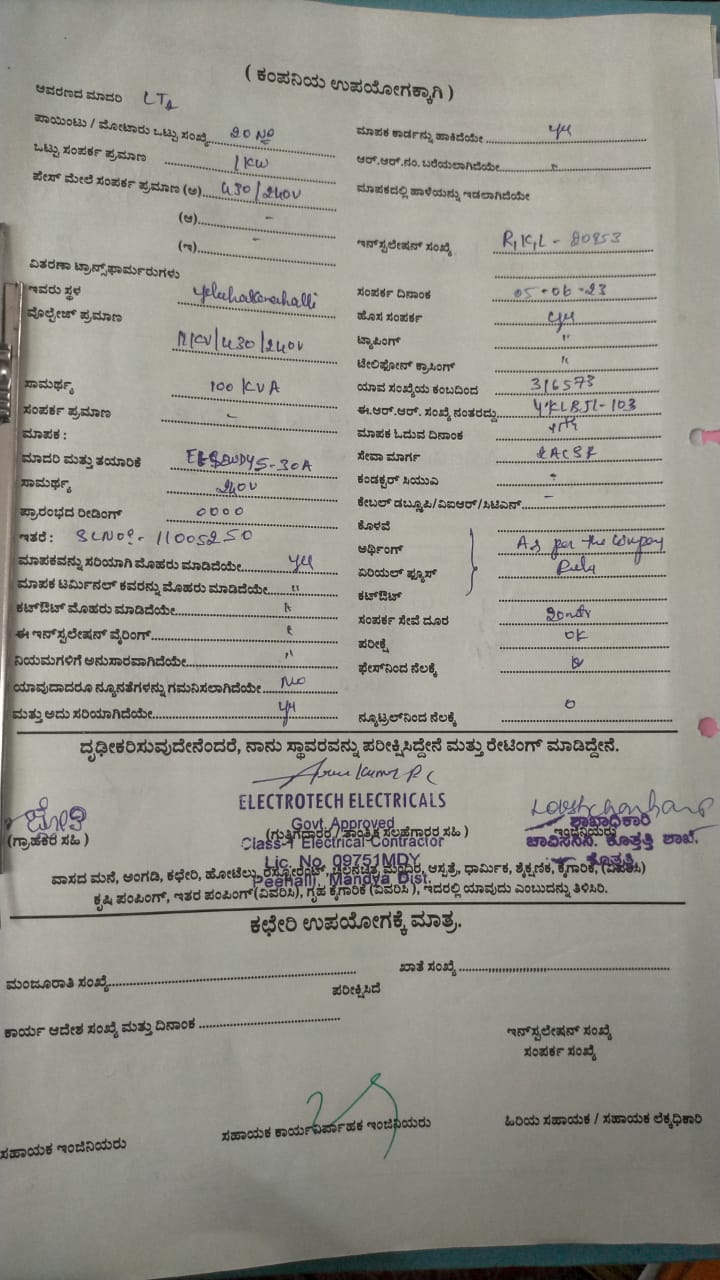 ( ಕಂಪನಿಯ ಉಪಯೋಗಕ್ಕಾಗಿ )
ಆವರಣದ ಮಾದರಿ LT2
ಪಾಯಿಂಟು / ಮೋಟಾರು ಒಟ್ಟು ಸಂಖ್ಯೆ 20 No
ಒಟ್ಟು ಸಂಪರ್ಕ ಪ್ರಮಾಣ 1 KW
ಪೇಸ್ ಮೇಲೆ ಸಂಪರ್ಕ ಪ್ರಮಾಣ (ಅ) 430/240V
(ಆ) -
(ಇ) -
ವಿತರಣಾ ಟ್ರಾನ್ಸ್‌ಫಾರ್ಮರುಗಳು
ಇವರು ಸ್ಥಳ
ವೊಲ್ಟೇಜ್ ಪ್ರಮಾಣ
11KV/430/240V
ಸಾಮರ್ಥ್ಯ 100 KVA
ಸಂಪರ್ಕ ಪ್ರಮಾಣ -
ಮಾಪಕ :
ಮಾದರಿ ಮತ್ತು ತಯಾರಿಕೆ 5-30A
ಸಾಮರ್ಥ್ಯ 240V
ಪ್ರಾರಂಭದ ರೀಡಿಂಗ್ 0000
ಇತರೆ : SL No:- 11005250
ಮಾಪಕವನ್ನು ಸರಿಯಾಗಿ ಮೊಹರು ಮಾಡಿದೆಯೇ yes
ಮಾಪಕ ಟರ್ಮಿನಲ್ ಕವರನ್ನು ಮೊಹರು ಮಾಡಿದೆಯೇ "
ಕಟ್‌ಔಟ್ ಮೊಹರು ಮಾಡಿದೆಯೇ
ಈ ಇನ್‌ಸ್ಪಲೇಷನ್ ವೈರಿಂಗ್
ನಿಯಮಗಳಿಗೆ ಅನುಸಾರವಾಗಿದೆಯೇ "
ಯಾವುದಾದರೂ ನ್ಯೂನತೆಗಳನ್ನು ಗಮನಿಸಲಾಗಿದೆಯೇ No
ಮತ್ತು ಅದು ಸರಿಯಾಗಿದೆಯೇ yes
ಮಾಪಕ ಕಾರ್ಡನ್ನು ಹಾಕಿದೆಯೇ yes
ಆರ್.ಆರ್.ನಂ. ಬರೆಯಲಾಗಿದೆಯೇ "
ಮಾಪಕದಲ್ಲಿ ಹಾಳೆಯನ್ನು ಇಡಲಾಗಿದೆಯೇ
ಇನ್‌ಸ್ಪಲೇಷನ್ ಸಂಖ್ಯೆ R,K,L - 20853
ಸಂಪರ್ಕ ದಿನಾಂಕ 05-06-23
ಹೊಸ ಸಂಪರ್ಕ yes
ಟ್ಯಾಪಿಂಗ್ "
ಟೇಲಿಫೋನ್ ಕ್ರಾಸಿಂಗ್ "
ಯಾವ ಸಂಖ್ಯೆಯ ಕಂಬದಿಂದ 316573
ಈ.ಆರ್.ಆರ್. ಸಂಖ್ಯೆ ನಂತರದ್ದು
ಮಾಪಕ ಓದುವ ದಿನಾಂಕ
ಸೇವಾ ಮಾರ್ಗ
ಕಂಡಕ್ಟರ್ ಸಿಯುಎ
ಕೇಬಲ್ ಡಬ್ಲ್ಯೂಪಿ/ವಿಐಆರ್/ಸಿಟಿಎಸ್ -
ಕೊಳವೆ
ಅರ್ಥಿಂಗ್ As per the Company
ಏರಿಯಲ್ ಫ್ಯೂಸ್ Rule
ಕಟ್‌ಔಟ್
ಸಂಪರ್ಕ ಸೇವೆ ದೂರ 20mtr
ಪರೀಕ್ಷೆ OK
ಫೇಸ್‌ನಿಂದ ನೆಲಕ್ಕೆ
ನ್ಯೂಟ್ರಲ್‌ನಿಂದ ನೆಲಕ್ಕೆ 0
ದೃಢೀಕರಿಸುವುದೇನೆಂದರೆ, ನಾನು ಸ್ಥಾವರವನ್ನು ಪರೀಕ್ಷಿಸಿದ್ದೇನೆ ಮತ್ತು ರೇಟಿಂಗ್ ಮಾಡಿದ್ದೇನೆ.
ಜ್ಯೋತಿ
(ಗ್ರಾಹಕರ ಸಹಿ )
ELECTROTECH ELECTRICALS
Govt.Approved
(ಗುತ್ತಿಗೆದಾರರ / ತಾಂತ್ರಿಕ ಸಲಹೆಗಾರರ ಸಹಿ )
Class-1 Electrical Contractor
Lic. No. 09751MDY
Peehalli, Mandya Dist.
ಶಾಖಾಧಿಕಾರಿ
ಇಂಜಿನಿಯರು
ಚಾವಿಸನಿನಿ. ಕೊತ್ತತ್ತಿ ಶಾಖೆ.
ಕೊತ್ತತ್ತಿ
ವಾಸದ ಮನೆ, ಅಂಗಡಿ, ಕಛೇರಿ, ಹೋಟೆಲು, ರೆಸ್ಟೋರೆಂಟ್, ಚಲನಚಿತ್ರ ಮಂದಿರ, ಆಸ್ಪತ್ರೆ, ಧಾರ್ಮಿಕ, ಶೈಕ್ಷಣಿಕ, ಕೈಗಾರಿಕೆ, (ವಿವರಿಸಿ)
ಕೃಷಿ ಪಂಪಿಂಗ್, ಇತರ ಪಂಪಿಂಗ್(ವಿವರಿಸಿ), ಗೃಹ ಕೈಗಾರಿಕೆ (ವಿವರಿಸಿ ), ಇದರಲ್ಲಿ ಯಾವುದು ಎಂಬುದನ್ನು ತಿಳಿಸಿರಿ.
ಕಛೇರಿ ಉಪಯೋಗಕ್ಕೆ ಮಾತ್ರ.
ಮಂಜೂರಾತಿ ಸಂಖ್ಯೆ
ಖಾತೆ ಸಂಖ್ಯೆ
ಪರೀಕ್ಷಿಸಿದೆ
ಕಾರ್ಯ ಆದೇಶ ಸಂಖ್ಯೆ ಮತ್ತು ದಿನಾಂಕ
ಇನ್‌ಸ್ಪಲೇಷನ್ ಸಂಖ್ಯೆ
ಸಂಪರ್ಕ ಸಂಖ್ಯೆ
ಸಹಾಯಕ ಇಂಜಿನಿಯರು
ಸಹಾಯಕ ಕಾರ್ಯನಿರ್ವಾಹಕ ಇಂಜಿನಿಯರು
ಹಿರಿಯ ಸಹಾಯಕ / ಸಹಾಯಕ ಲೆಕ್ಕಧಿಕಾರಿ